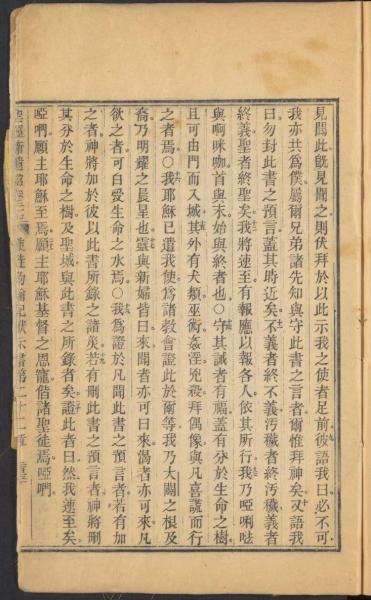 見聞此旣見聞之則伏拜於以此示我之使者足前彼語我曰必不可
我亦共爲僕屬爾兄弟諸先知與守此書之言者爾惟拜神矣又語我
曰勿封此書之預言蓋其時近矣不義者終不義污穢者終污穢義者
終義聖者終聖矣我將速至有報應以報各人依其所行我乃啞唎唦
與啊咪咖首與末始與終者也○守其誡者有福蓋有分於生命之樹
且可由門而入城其外有犬類巫術姦淫兇殺拜偶像與凡喜謊而行
之者焉○我耶穌已遣我使爲諸教會證此於爾等我乃大闢之根及
裔乃明耀之晨星也靈與新婦皆曰來聞者亦可曰來渴者亦可來凡
欲之者可白受生命之水焉○我爲證於凡聞此書之預言者若有加
之者神將加於彼以此書所錄之諸災若有刪此書之預言者神將刪
其分於生命之樹及聖城與此書之所錄者矣證此者曰然我速至矣
啞啊願主耶穌至焉願主耶穌基督之恩寵偕諸聖徒焉啞啊
使徒約翰記默示書第二十二章